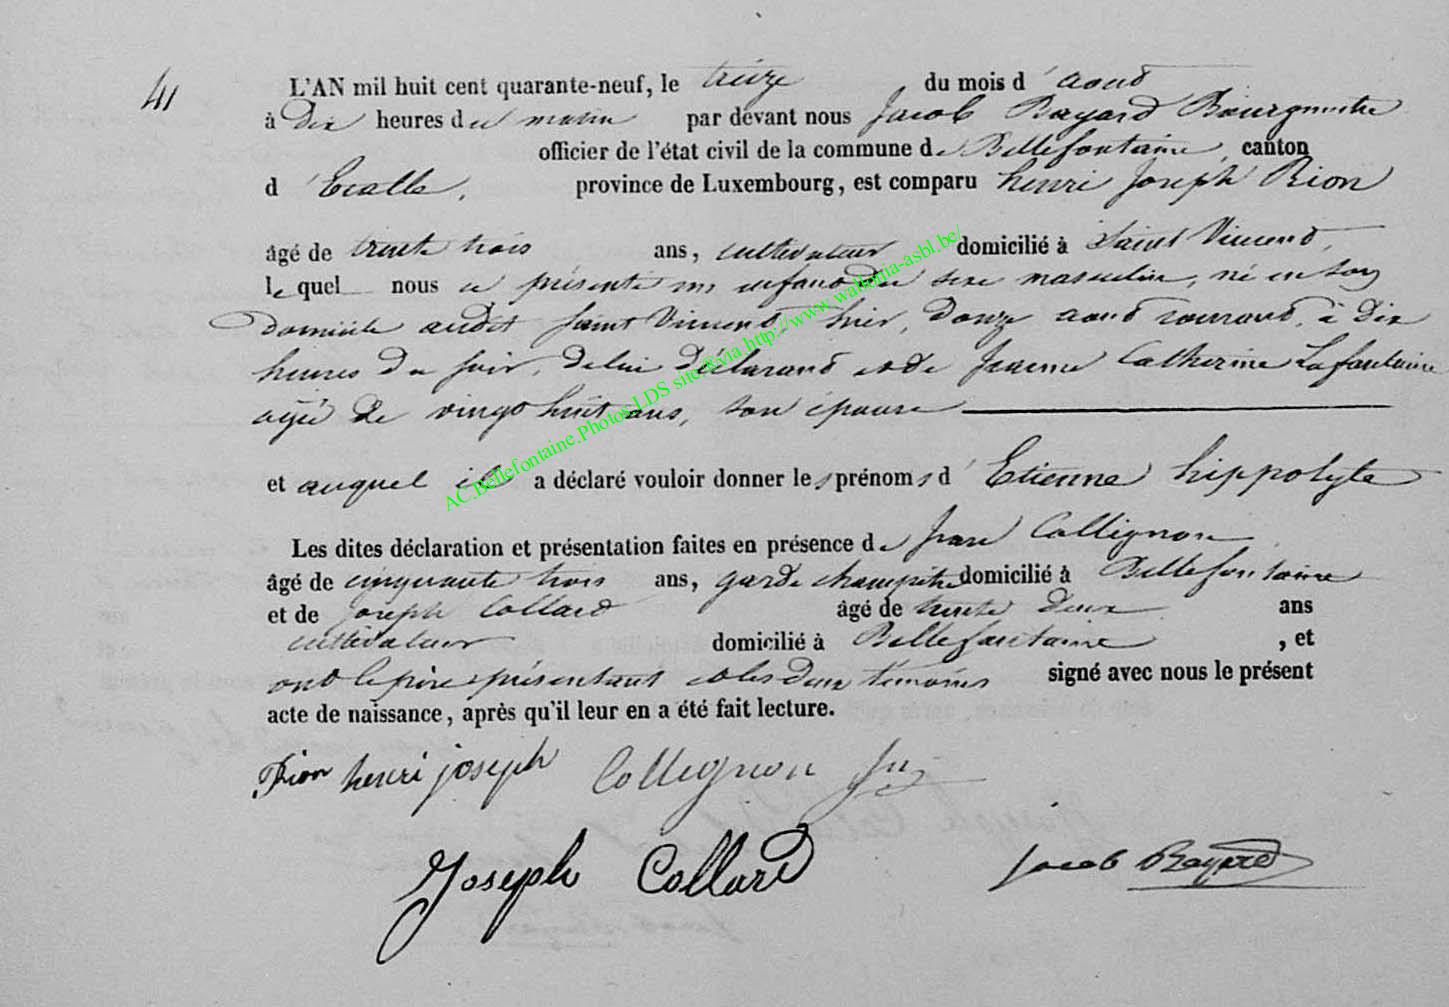 41
L'AN mil huit cent quarante-neuf, le treize du mois d'aout
à Dix heures du matin par devant nous Jacob Bayard Bourgmestre
officier de l'état civil de la commune de Bellefontaine, canton
d'Etalle, province de Luxembourg, est comparu henri Joseph Rion
âgé de trente trois ans, cultivateur domicilié à Saint Vincent,
lequel nous a présenté un enfant du sexe masculin, né en son
domicile audit Saint Vincent, hier, Douze aout courant, à dix
heures du soir, de lui déclarant et de Jeanne Catherine Lafontaine
agée de vingt huit ans, son épouse
et auquel il a déclaré vouloir donner les prénoms d'Etienne hippolyte
Les dites déclaration et présentation faites en présence de Jean Collignon
âgé de cinquante trois ans, garde champêtre domicilié à Bellefontaine
et de Joseph Collard âgé de trente Deux ans
cultivateur domicilié à Bellefontaine, et
ont le père présentant et les Deux témoins signé avec nous le présent
acte de naissance, après qu'il leur en a été fait lecture.
Rion henri joseph Collignon
Joseph Collard Jacob Bayard
AC.Bellefontaine.Photos.LDS site®via http://www.wallonia-asbl.be/